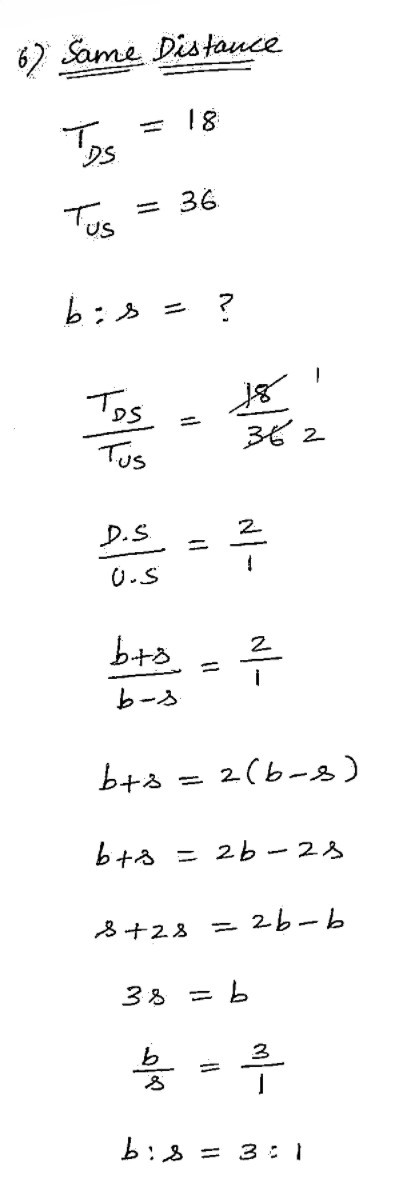 6) Same Distance
T_DS = 18
T_US = 36
b : s = ?
T_DS / T_US = 18 1 / 36 2
D.S / U.S = 2 / 1
b+s / b-s = 2 / 1
b+s = 2(b-s)
b+s = 2b - 2s
s+2s = 2b-b
3s = b
b / s = 3 / 1
b : s = 3 : 1